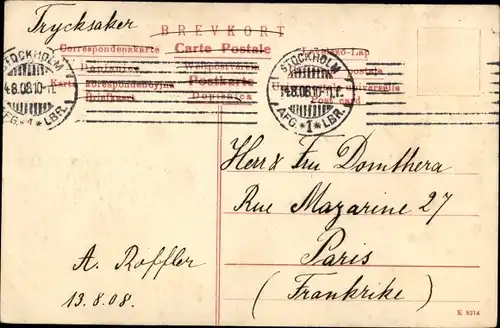 Trycksaker
BREVKORT
Correspondenzkarte Carte Postale Levelező-Lap
Dopisnica Weltpostverein postale
Karta korespondencyjna Postkarte Union postale universelle
Briefkaart Dopisnica Post card
STOCKHOLM
14.8.08.10-11.F.
AFG. *1* LBR.
STOCKHOLM
14.8.08.10-11.F.
AFG. *1* LBR.
Herr & Fru Domthera
Rue Mazarine 27
Paris
(Frankrike)
A. Roffler
13.8.08.
K 8214